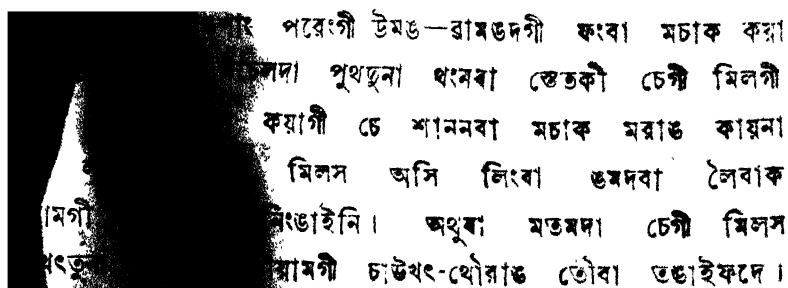 পরেংগী উমঙ—রামঙদগী ফংবা মচাক কয়া
পুথতুনা থংনবা স্তেতকী চেগী মিলগী
কয়াগী চে শাননবা মচাক মরাঙ কায়না
মিলস অসি লিংবা ঙমদবা লৈবাক
নিংঙাইনি। অথুবা মতমদা চেগী মিলস
চাউখৎ-থৌরাঙ তৌবা তঙাইফদে।